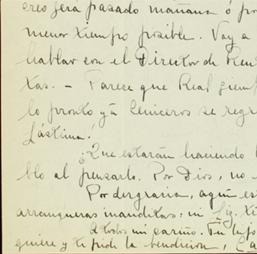 creo será pasado mañana ó po
menor tiempo posible. Vay a
hablar con el Director de Ren
tas. - Parece que Real
lo pronto ya Ceniceros se regr
Lástima!
¿Que estarán haciendo
blo al pensarlo. Por Dios, no
Por desgracia, aquí es
arrangueras manditas, ni
á todos mi cariño. Tu
quiere y te pide la bendicion,